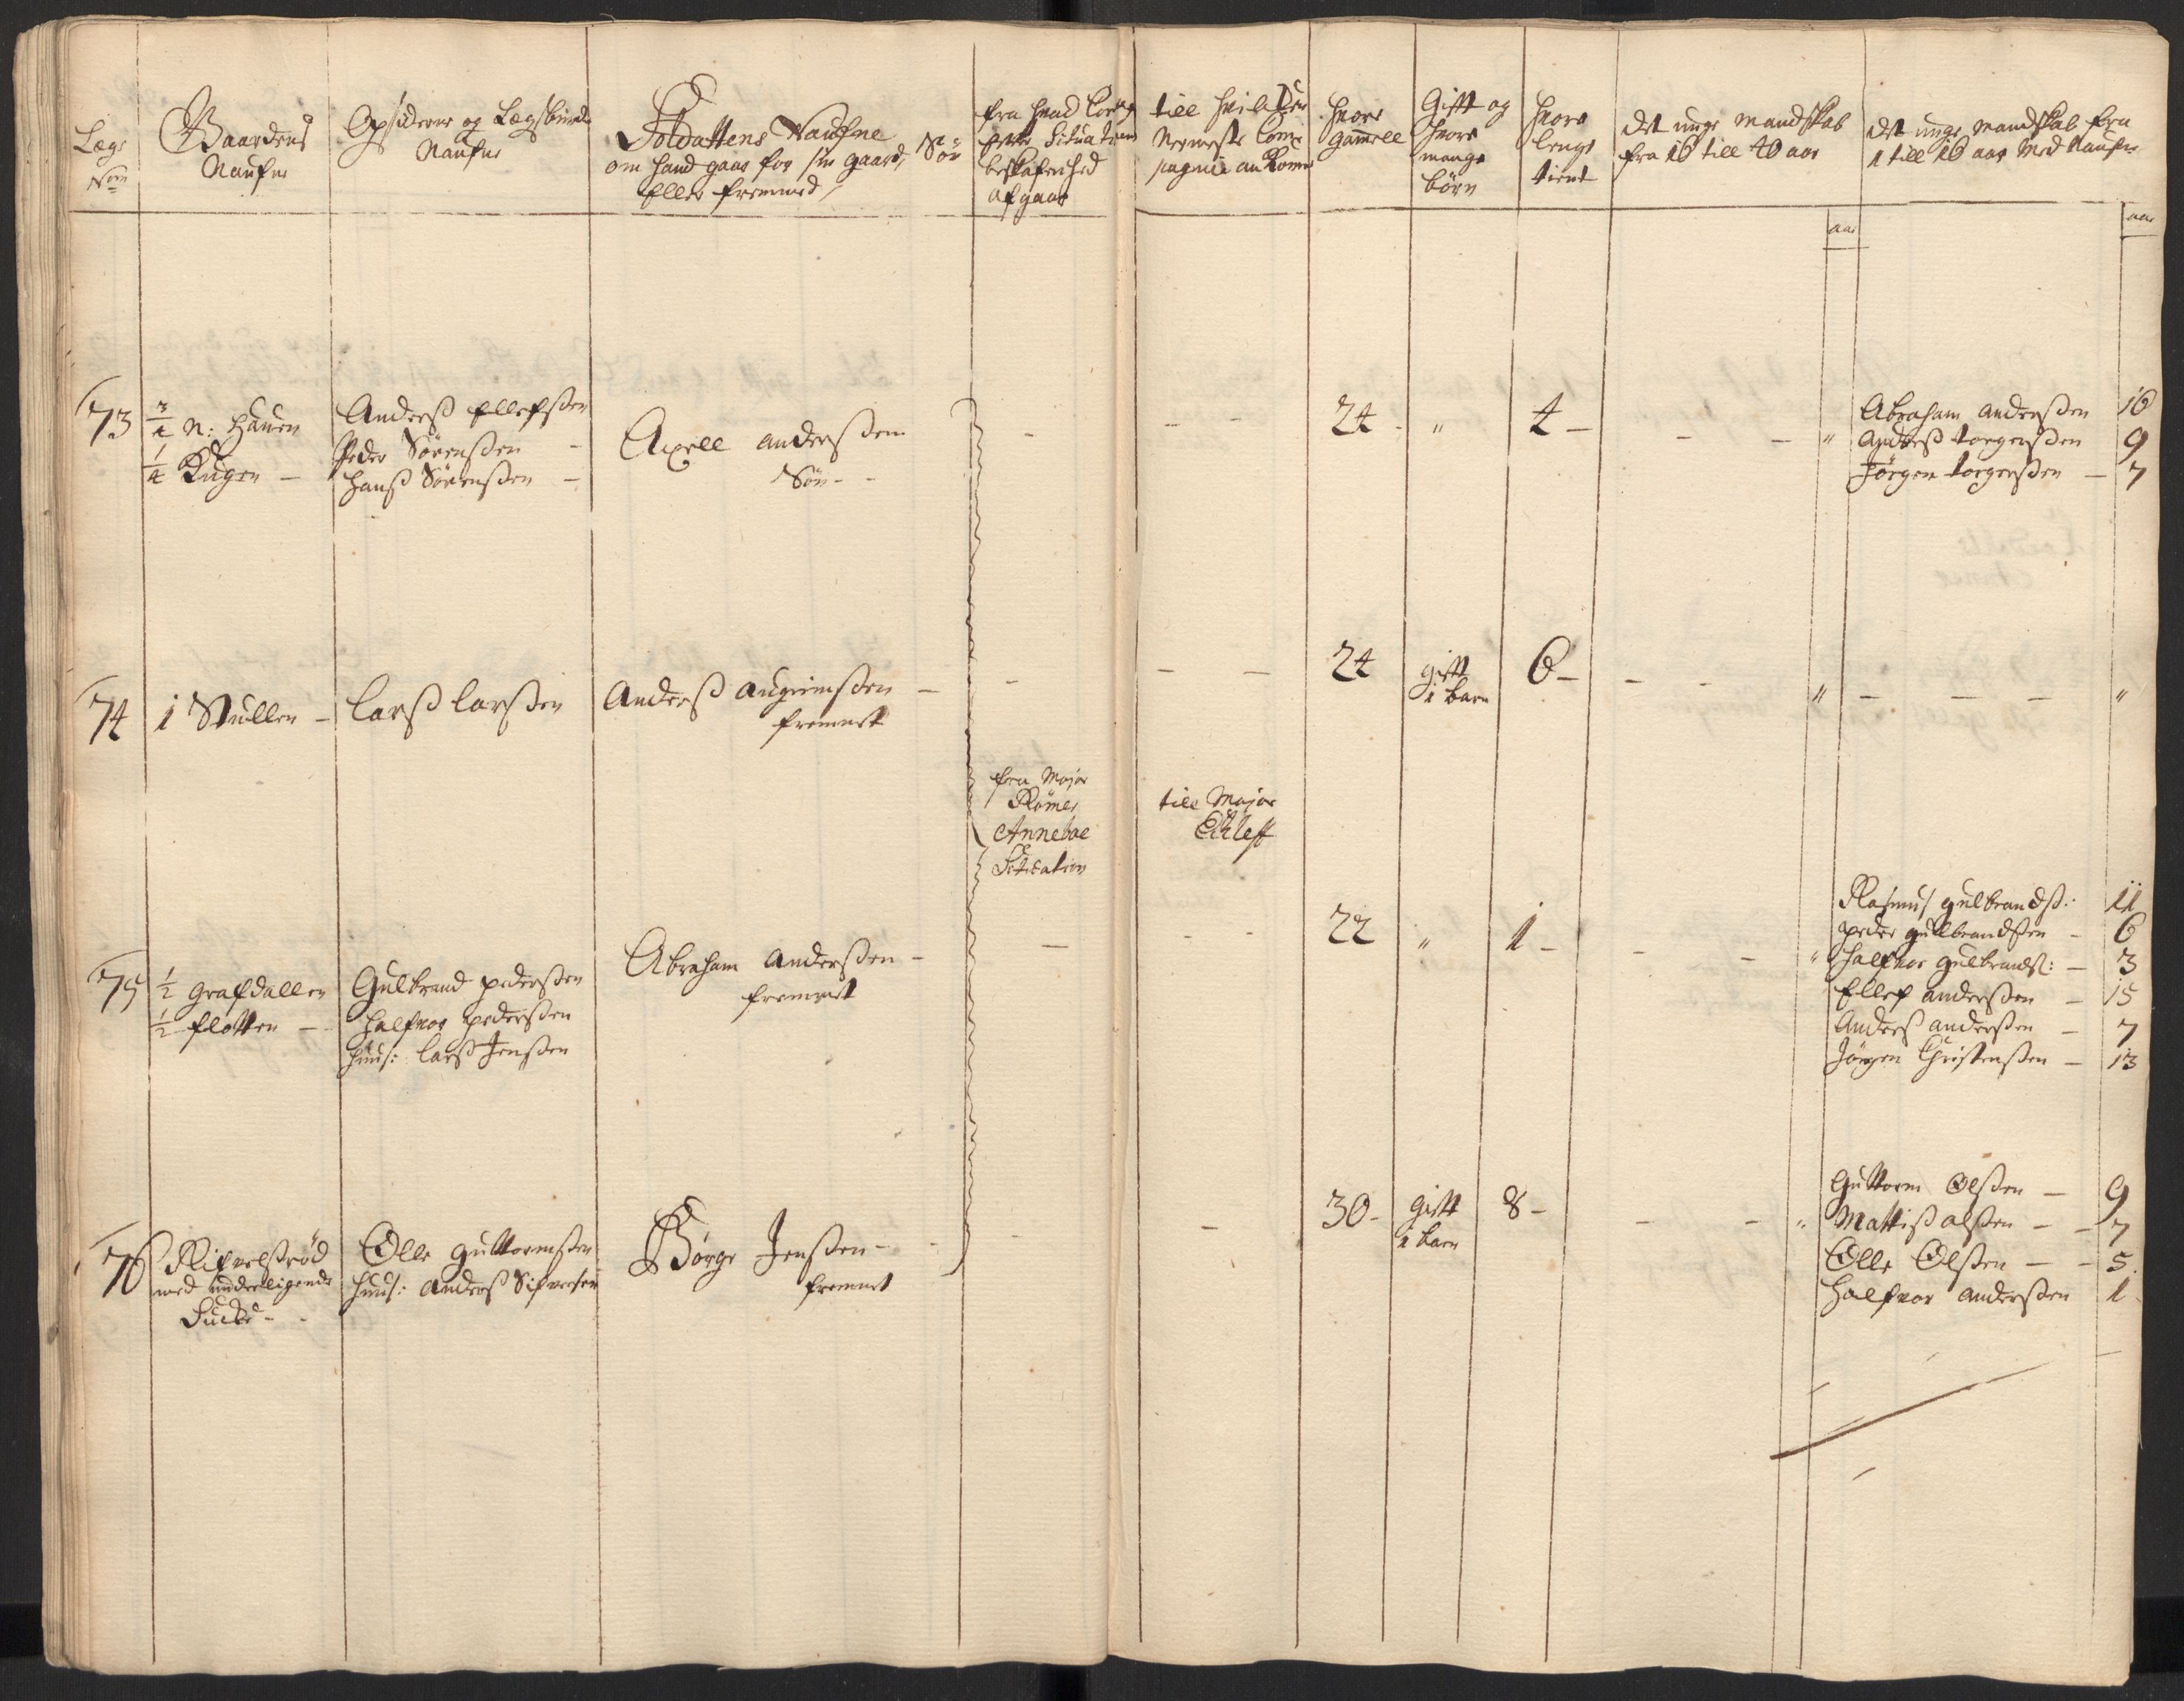 Lægs
No
Gaardens
Naufne
Opsidderne og Lægsbunds
Naufne
Soldattens Naufne
om hand gaar for sin gaard,
Eller fremmed /
Søn
fra hvad Comp
efter Situations
beskafenhed
afgaar
till hvilcken
Nermeste Com
pagnie ankomme
hvor
gamell
Gift og
hvor
mange
börn
hvor
lenge
tient
det unge mandskab
fra 16 till 40 aar
det unge mandskab fra
1 till 16 aar med Naufne
aar
aar
73
3/4 N: Hauen
1/4 Kugen -
Anderß Ellefßen
Peder Sörenßen -
Hanß Sörenßen -
Axell Anderßen
Sön - -
-
- -
24 -
"
4 -
- -
"
Abraham Anderßen 16
Anderß torgerßen 9
Jörgen torgerßen - 7
74
1 Stullen -
Larß Larßen
Anderß Augrimßen -
fremmet
-
- -
24
gift
1 barn
6 -
- -
"
- - -
"
fra Major
Römer
Annebae
Situation
till Major
75
1/2 Grafdallen
1/2 flotten -
Gulbrand pederßen
Halfvor pederßen
huus: Larß Jenßen
Abraham Anderßen -
fremmet
-
- -
22
"
1 -
- -
"
Rasmus gulbrandß: 11
peder gulbrandßen - 6
Halfvor gulbrandß: - 3
Ellef Anderßen - 15
Anderß Anderßen - 7
Jörgen Christenßen - 13
76
Rifvelßröd
med underligende
Olle Guttormßen
huus: Anderß Sifverßen
Börge Jenßen - -
fremmet
-
-
30 -
gift
1 barn
8 -
- -
"
Guttorm Olßen - 9
Mattiß olßen - - 7
Olle Olßen - - 5
Halfvor Anderßen 1